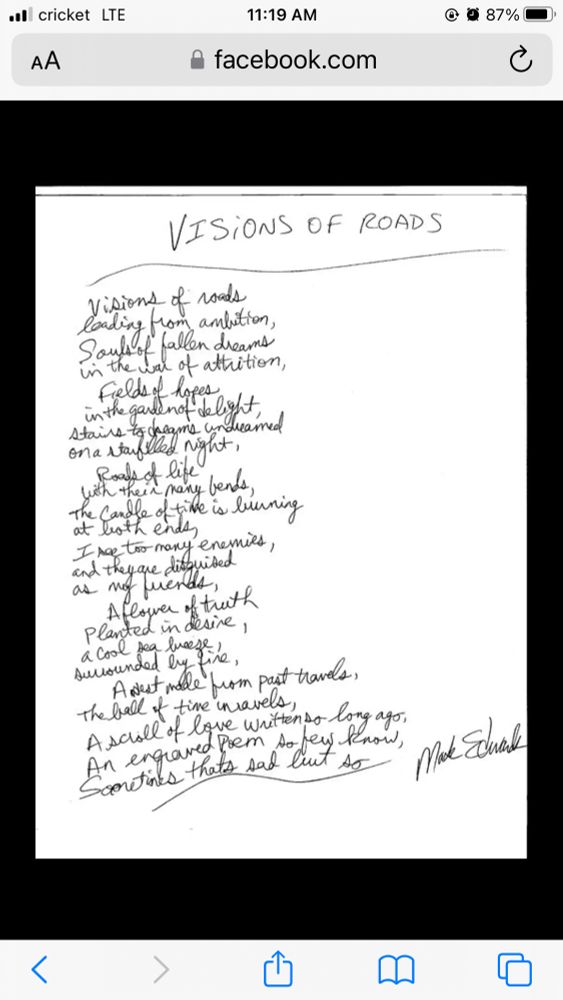 cricket LTE 11:19 AM 87%
AA facebook.com
VISIONS OF ROADS
Visions of roads
leading from ambition,
Souls of fallen dreams
in the war of attrition,
Fields of hopes
in the garden of delight,
stairs to dreams undreamed
on a starfilled night,
Roads of life
with their many bends,
The Candle of time is burning
at both ends,
I see too many enemies,
and they are disguised
as my friends,
A flower of truth
Planted in desire,
a cool sea breeze,
surrounded by fire,
A nest made from past travels,
The ball of time unravels,
A scroll of love written so long ago,
An engraved Poem so few know,
Sometimes thats sad but so
Mark Edwards